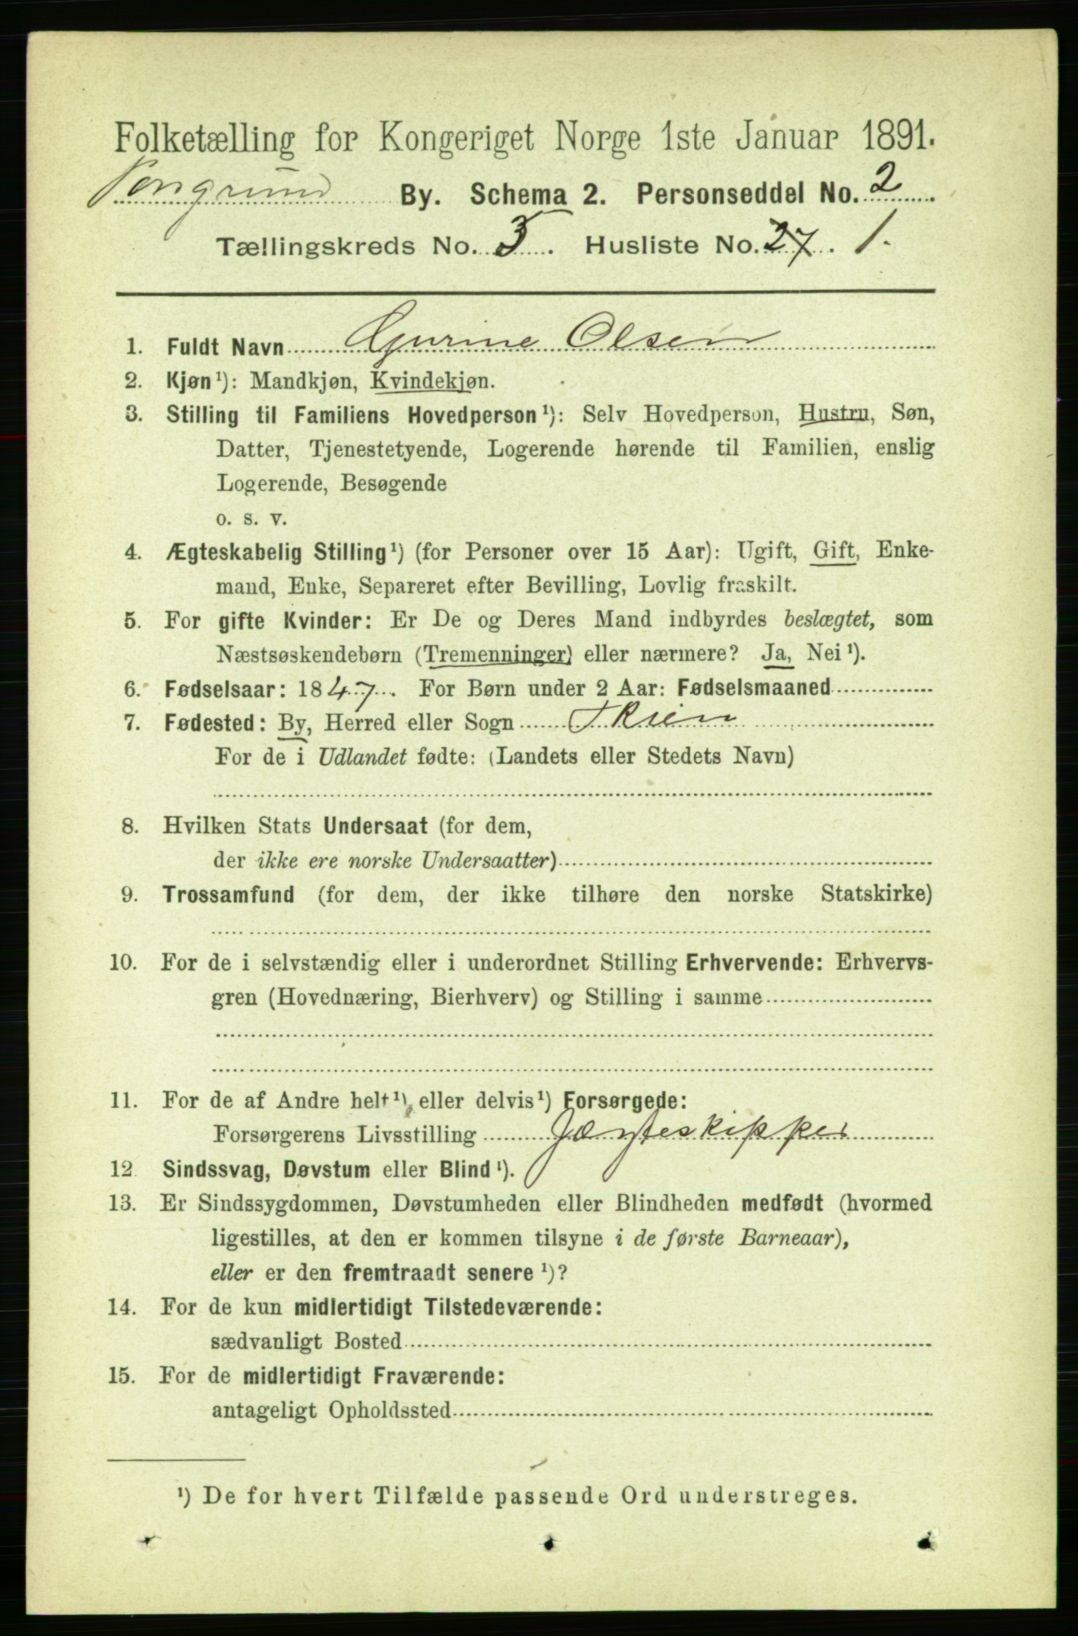 Folketælling for Kongeriget Norge 1ste Januar 1891.
Porsgrund By. Schema 2. Personseddel No. 2.
Tællingskreds No. 5. Husliste No. 27. 1.
1. Fuldt Navn Gurine Olsen
2. Kjøn¹): Mandkjøn, Kvindekjøn.
3. Stilling til Familiens Hovedperson¹): Selv Hovedperson, Hustru, Søn,
Datter, Tjenestetyende, Logerende hørende til Familien, enslig
Logerende, Besøgende
o. s. v.
4. Ægteskabelig Stilling¹) (for Personer over 15 Aar): Ugift, Gift, Enke-
mand, Enke, Separeret efter Bevilling, Lovlig fraskilt.
5. For gifte Kvinder: Er De og Deres Mand indbyrdes beslægtet, som
Næstsøskendebørn (Tremenninger) eller nærmere? Ja, Nei¹).
6. Fødselsaar: 1847. For Børn under 2 Aar: Fødselsmaaned
7. Fødested: By, Herred eller Sogn Skien
For de i Udlandet fødte: (Landets eller Stedets Navn)
8. Hvilken Stats Undersaat (for dem,
der ikke ere norske Undersaatter)
9. Trossamfund (for dem, der ikke tilhøre den norske Statskirke)
10. For de i selvstændig eller i underordnet Stilling Erhvervende: Erhvervs-
gren (Hovednæring, Bierhverv) og Stilling i samme
11. For de af Andre helt¹), eller delvis¹) Forsørgede:
Forsørgerens Livsstilling Jægteskipper
12 Sindssvag, Døvstum eller Blind¹).
13. Er Sindssygdommen, Døvstumheden eller Blindheden medfødt (hvormed
ligestilles, at den er kommen tilsyne i de første Barneaar),
eller er den fremtraadt senere¹)?
14. For de kun midlertidigt Tilstedeværende:
sædvanligt Bosted
15. For de midlertidigt Fraværende:
antageligt Opholdssted
¹) De for hvert Tilfælde passende Ord understreges.